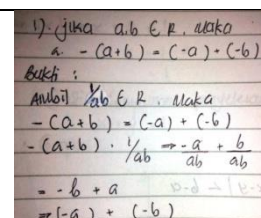 1). jika a.b ∈ R, Maka
a. - (a+b) = (-a) + (-b)
Bukti :
Ambil 1/ab ∈ R. Maka
- (a+b) = (-a) + (-b)
- (a+b) · 1/ab => -a/ab + b/ab
= -b + a
=> (-a) + (-b)